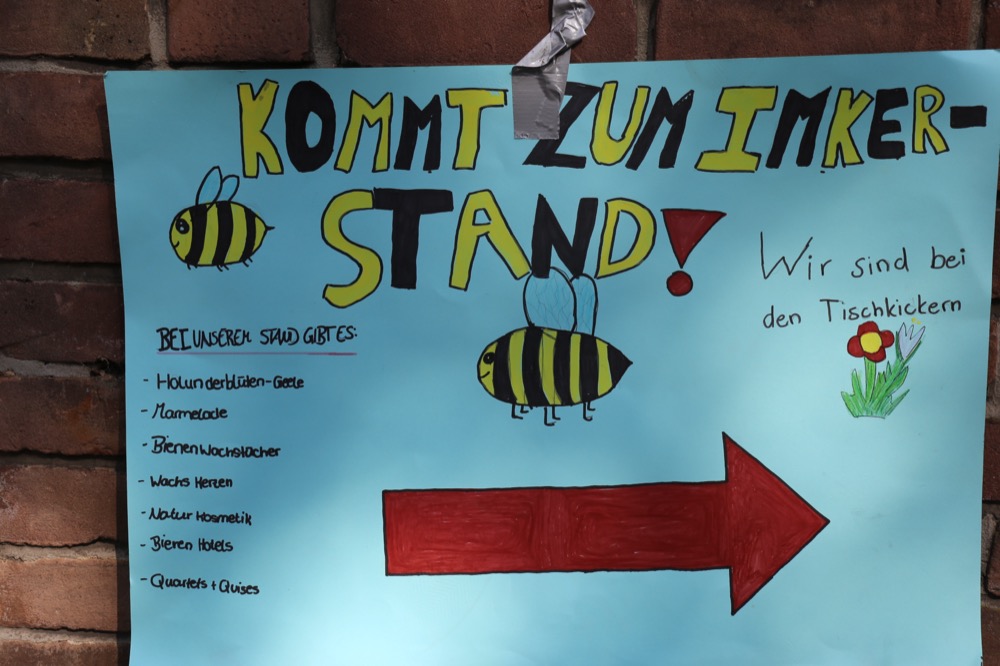 KOMMT ZUM IMKER-
STAND!
Wir sind bei
den Tischkickern
BEI UNSEREM STAND GIBT ES:
- Holunderblüten-Geele
- Marmelade
- Bienenwachstücher
- Wachs Herzen
- Natur Kosmetik
- Bienen Hotels
- Quartets + Quises